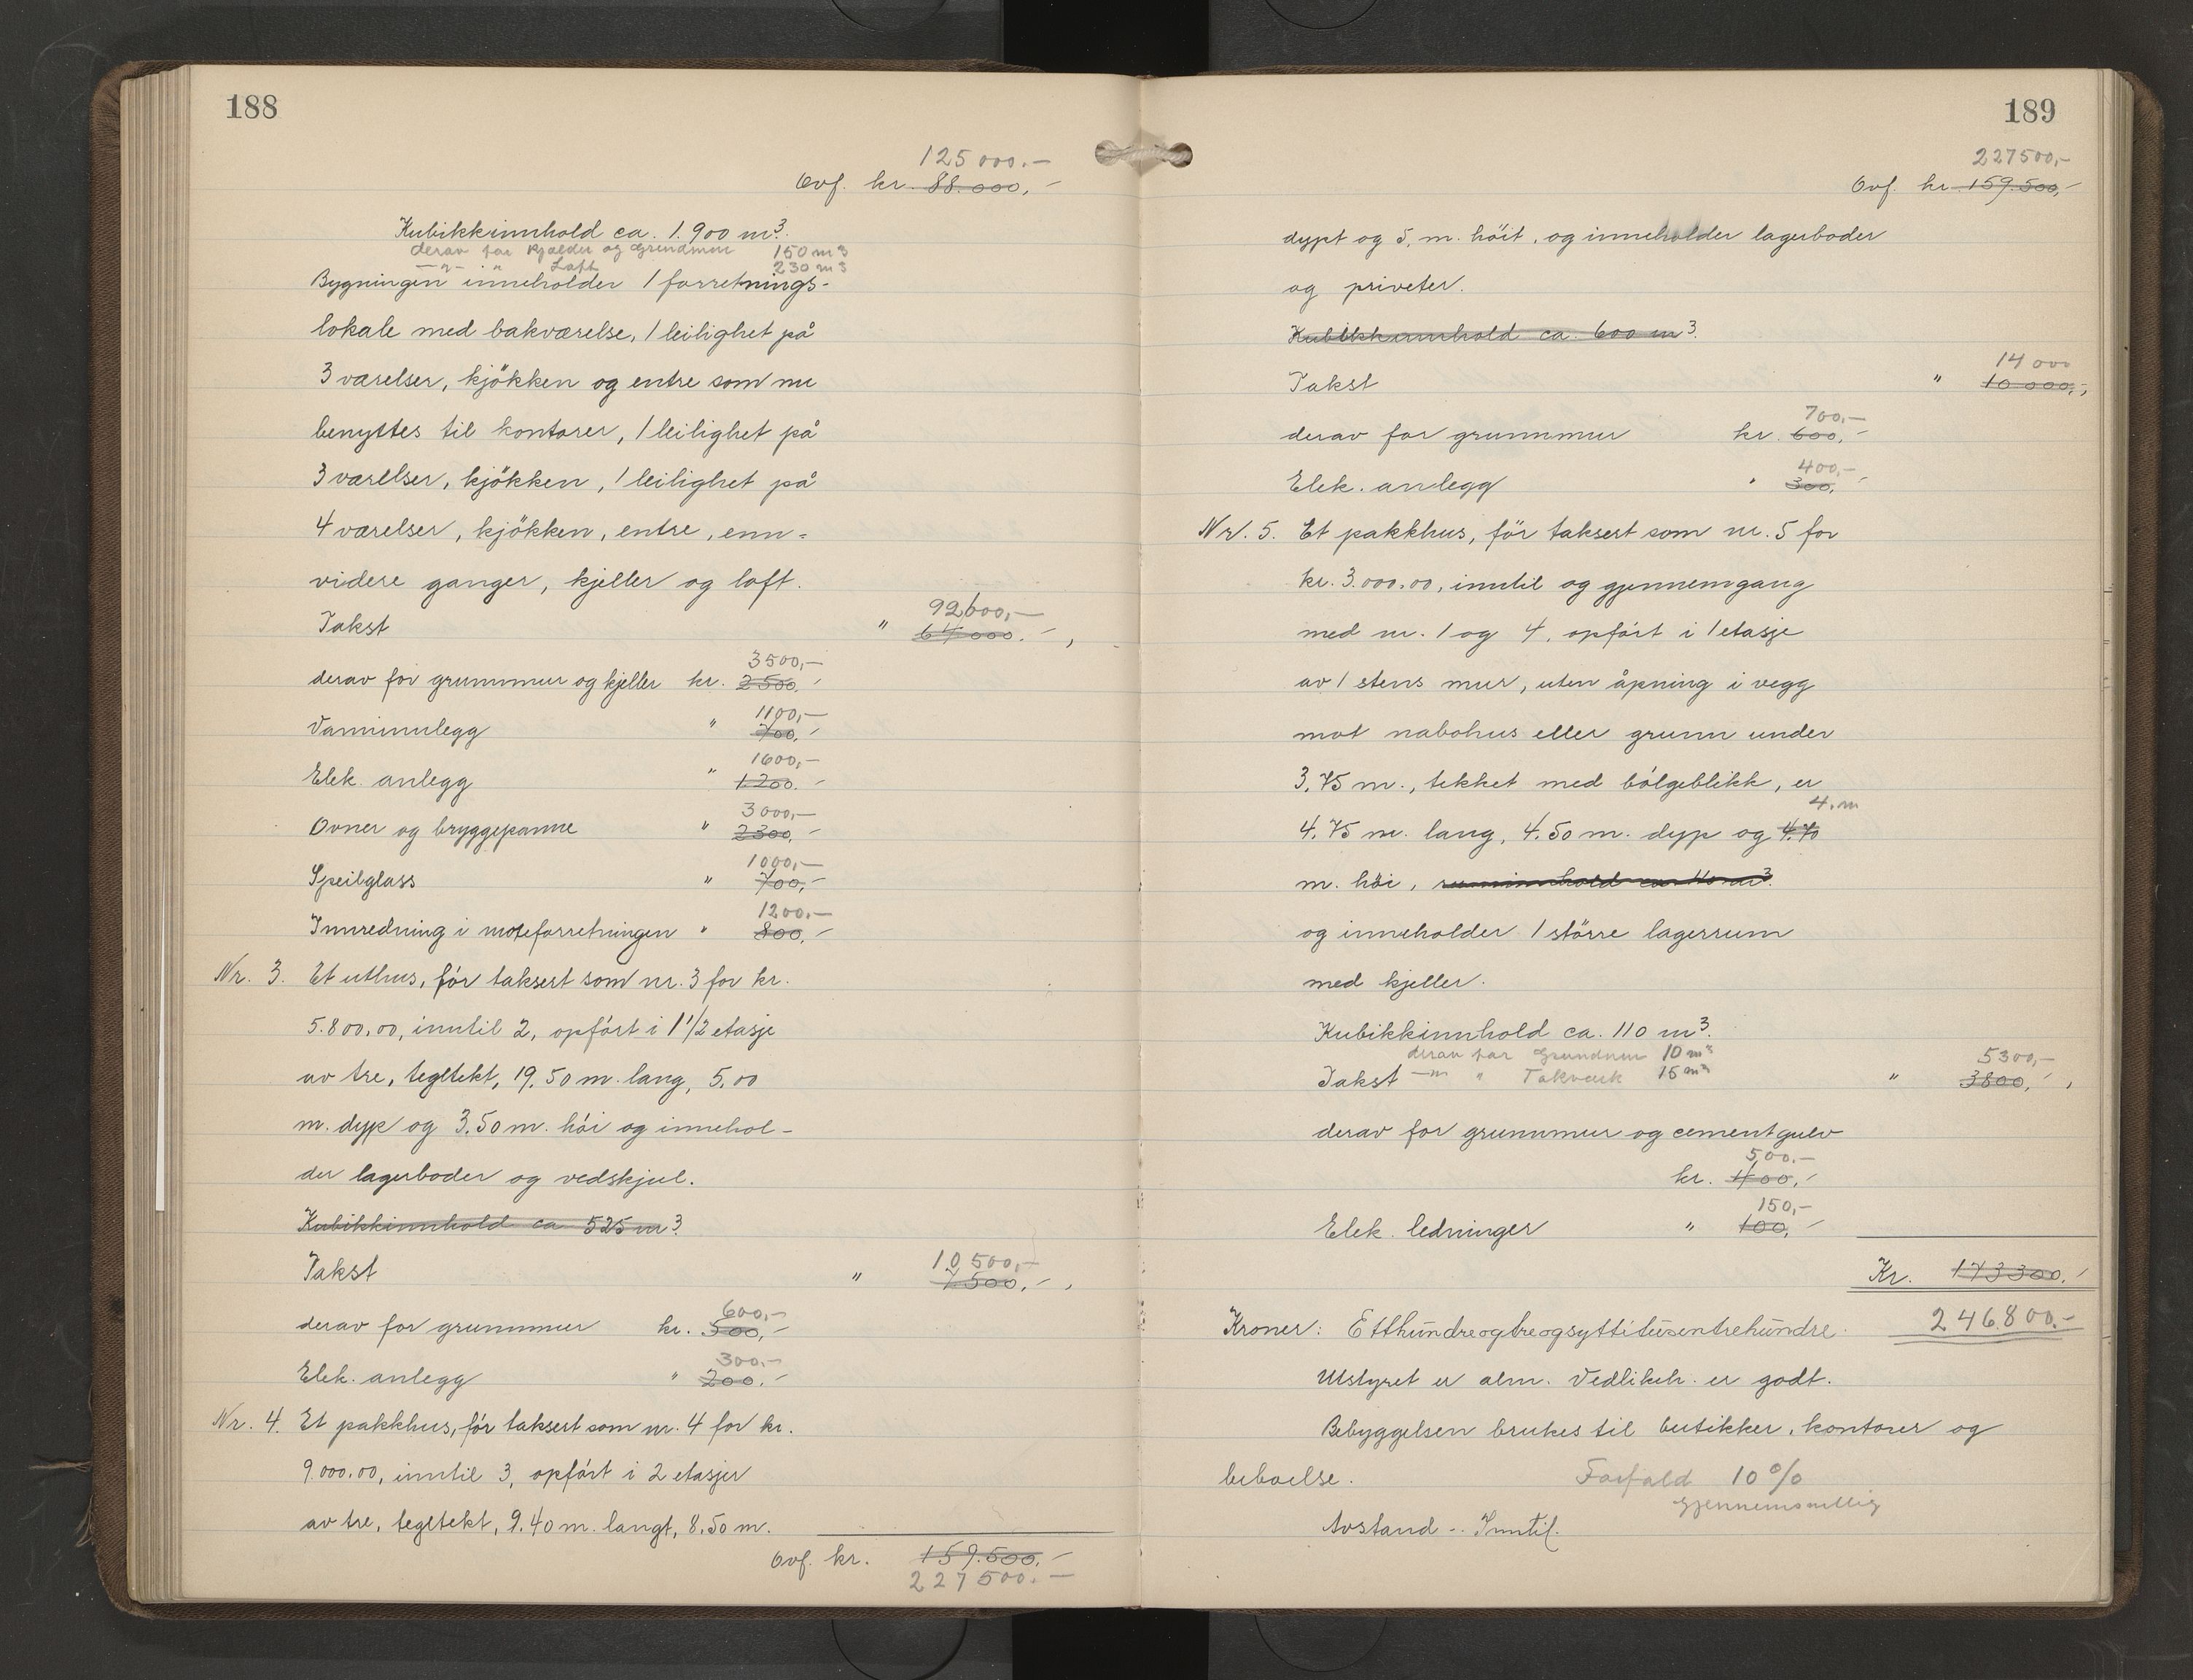 188
125000.-
Ovf. kr. 88.000,-
Kubikkinnhold ca. 1.900 m³.
derav for Kjælder og Grundmur 150 m³
-"- " Loft 230 m³
Bygningen inneholder 1 forretnings-
lokale med bakværelse, 1 leilighet på
3 værelser, kjökken og entre som nu
benyttes til kontorer, 1 leilighet på
3 værelser, kjökken, 1 leilighet på
4 værelser, kjökken, entre, enn=
videre ganger, kjeller og loft.
92000,-
Takst " 64000.-,
3500,-
derav for grunnmur og kjeller kr. 2500.-
1100,-
Vanninnlegg " 700.-
1600,-
Elek. anlegg " 1.200.-
3000,-
Ovner og bryggepanne " 2300,-
1000,-
Speilglass " 700,-
1200.-
Innredning i moteforretningen " 800,-
Nr. 3. Et uthus, för taksert som nr. 3 for kr.
5.800,00, inntil 2, opfört i 1 1/2 etasje
av tre, tegltekt, 19.50 m. lang, 5.00
m. dyp og 3.50 m. höi og innehol-
der lagerboder og vedskjul.
Kubikkinnhold ca 525 m³.
10500,-
Takst " 7500,-,
600,-
derav for grunnmur kr. 500,-
300,-
Elek. anlegg " 200.-
Nr. 4. Et pakkhus, för taksert som nr. 4 for kr.
9.000,00, inntil 3, opfört i 2 etasjer
av tre, tegltekt, 9.40 m. langt, 8.50 m.
Ovf. kr. 159.500.-
227500.-
189
227500,-
Ovf. kr 159.500,-
dypt og 5, m. höit, og inneholder lagerboder
og priveter.
Kubikkinnhold ca. 600 m³.
14000
Takst " 10000,-,
700,-
derav for grunnmur kr. 600,-
400,-
Elek. anlegg " 300,-
Nr. 5. Et pakkhus, för taksert som nr. 5 for
kr. 3.000,00, inntil og gjennemgang
med nr. 1 og 4, opfört i 1 etasje
av 1 stens mur, uten åpning i vegg
mot nabohus eller grunn under
3,75 m., tekket med bölgeblikk, er
4. m
4.75 m. lang, 4.50 m. dyp og 4.70
m. höi, ruminnhold ca 110 m³.
og inneholder 1 större lagerrum
med kjeller.
Kubikkinnhold ca. 110 m³.
derav for Grundmur 10 m³
5300,-
Takst -"- " Takverk 15 m³ " 3800,-,
derav for grunnmur og cementgulv
500.-
kr. 400,-
150,-
Elek. ledninger " 100,-
Kr. 173300.-
Kroner: Etthundreogtreogsyttitusentrehundre. 246.800.-
Utstyret er alm. Vedlikeh. er godt.
Bebyggelsen brukes til butikker, kontorer og
beboelse. Forfald 10%
gjennemsnittlig
Avstand -. Inntil.